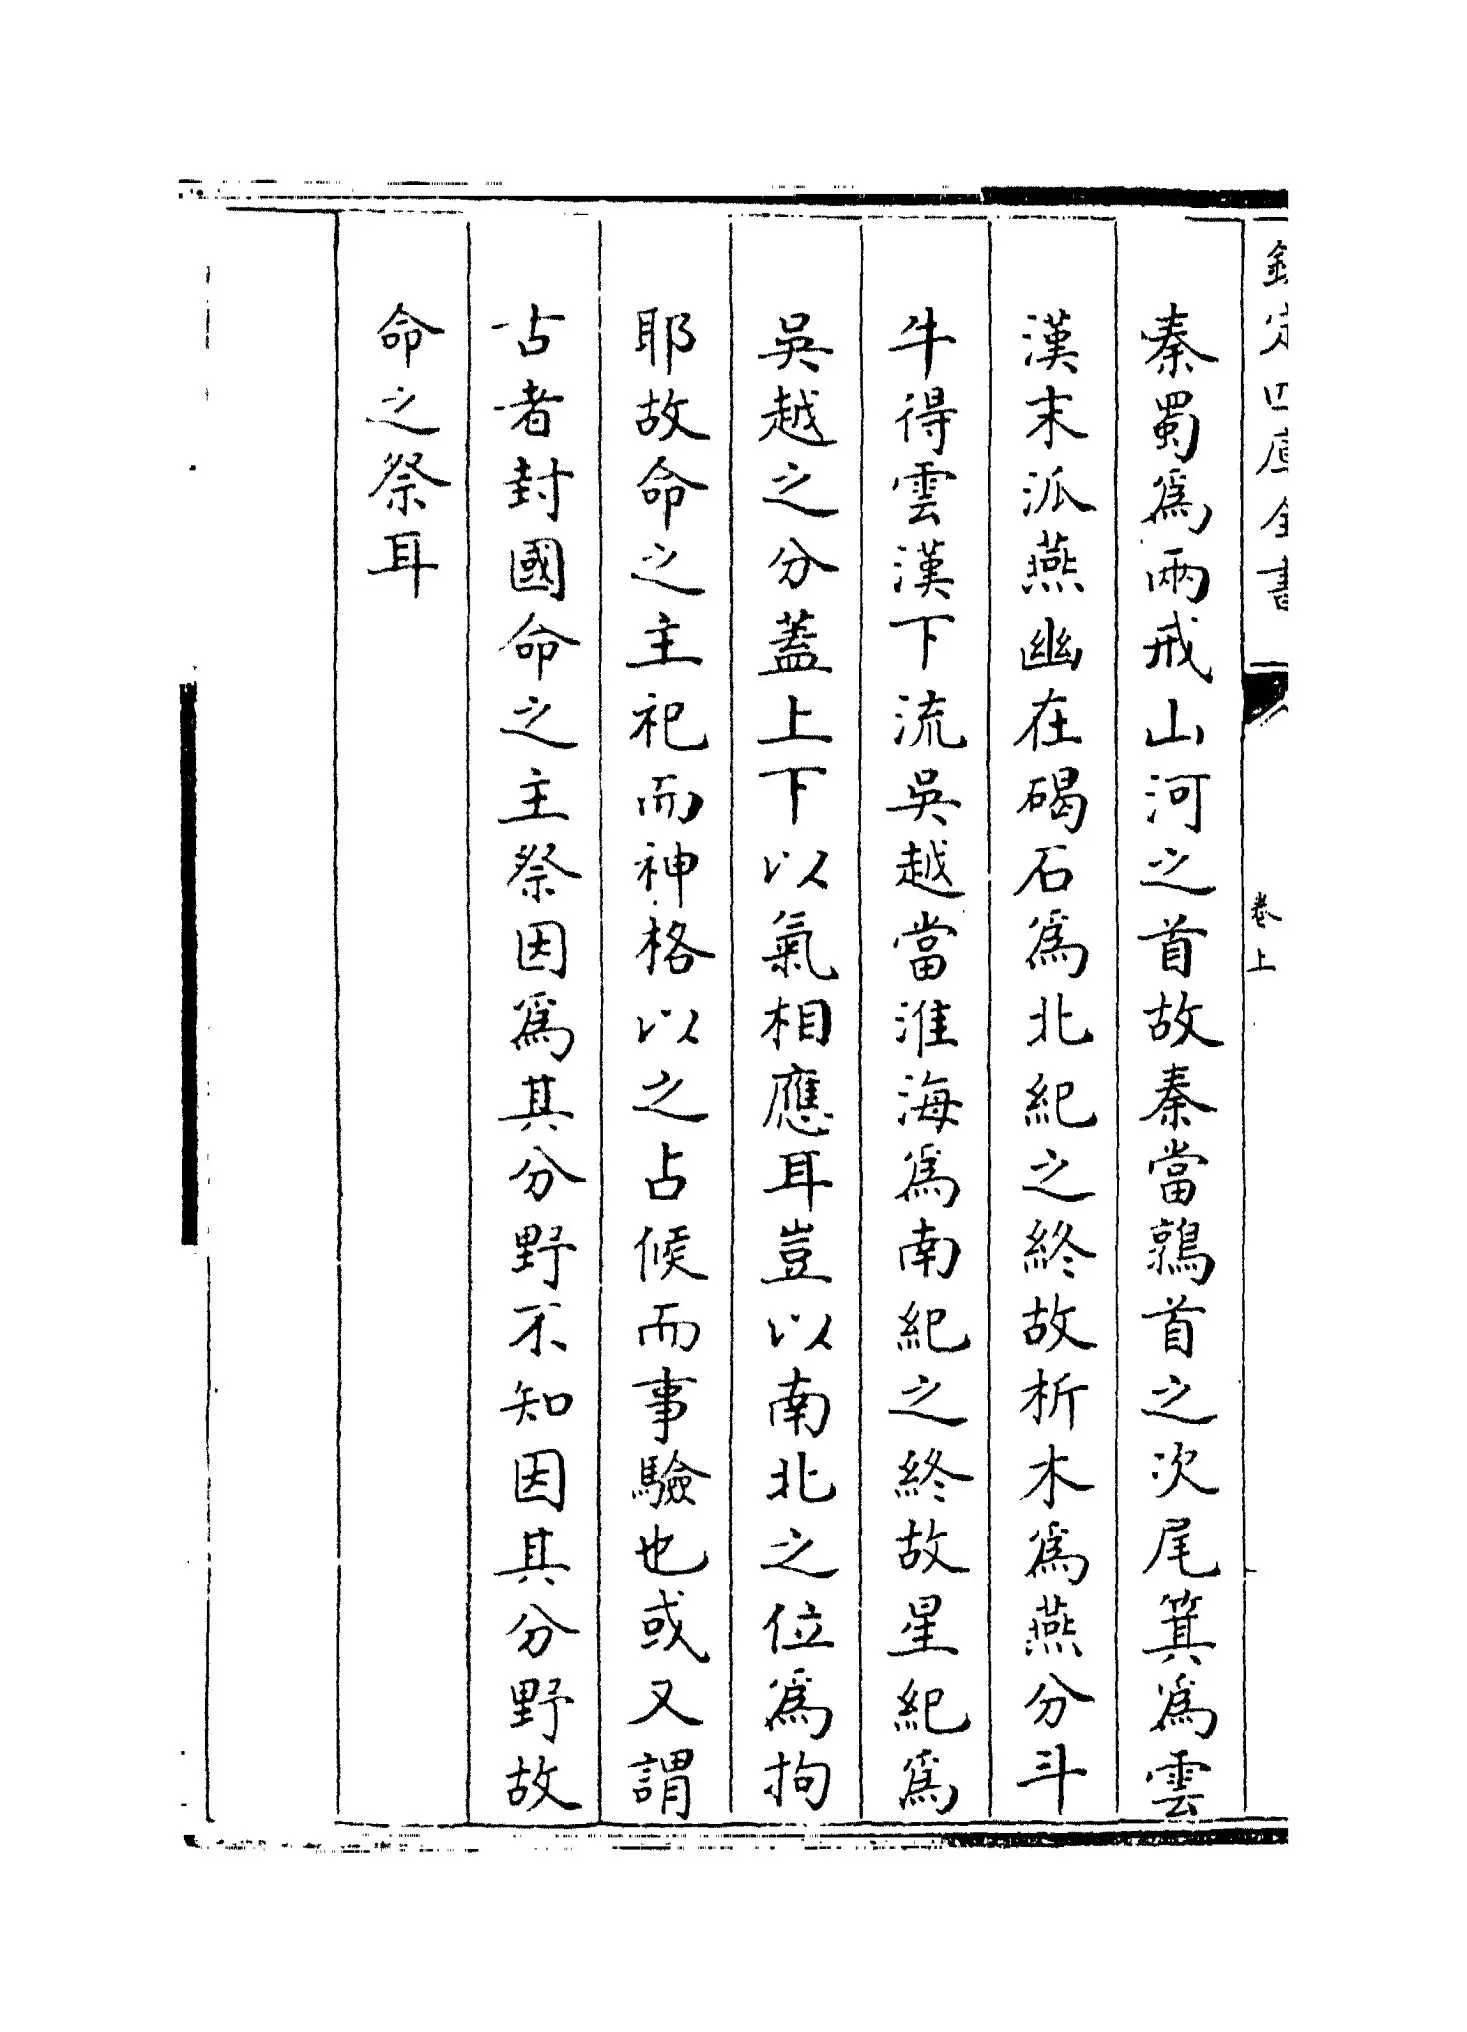 欽定四庫全書
卷上
秦蜀為兩戒山河之首故秦當鶉首之次尾箕為雲
漢末派燕幽在碣石為北紀之終故析木為燕分斗
牛得雲漢下流吳越當淮海為南紀之終故星紀為
吳越之分蓋上下以氣相應耳豈以南北之位為拘
耶故命之主祀而神格以之占候而事驗也或又謂
古者封國命之主祭因為其分野不知因其分野故
命之祭耳